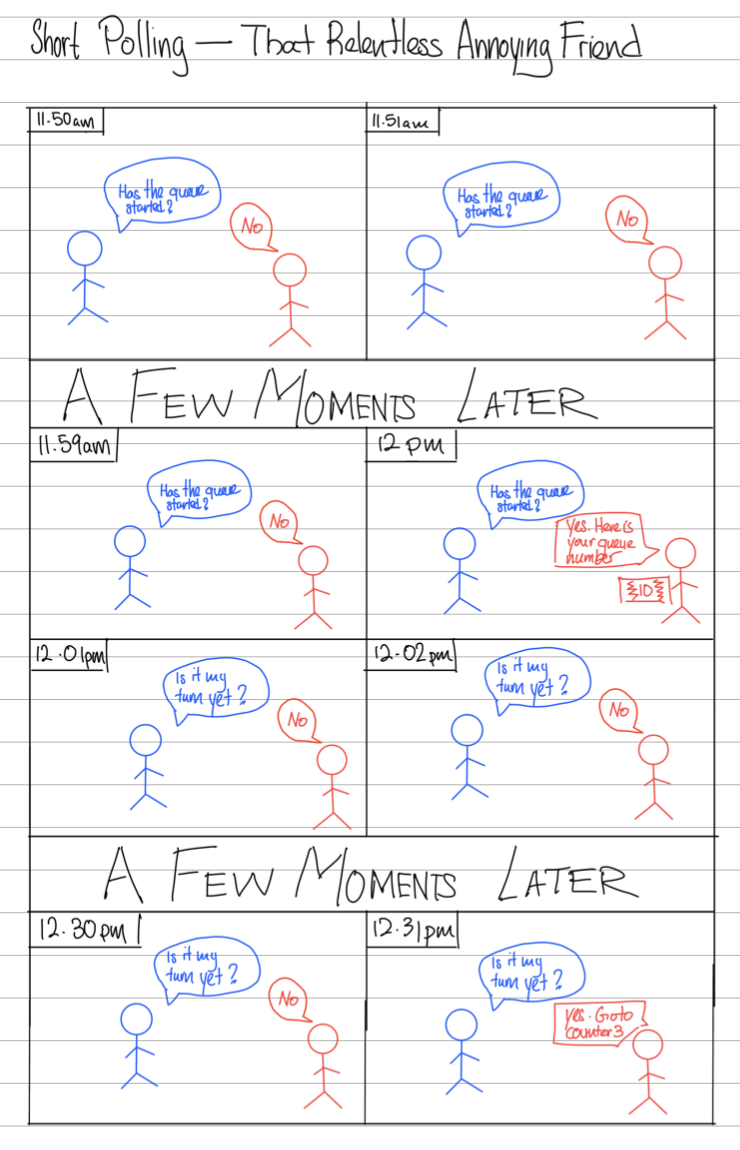 Short Polling — That Relentless Annoying Friend
11.50am
Has the queue
started?
No
11.51am
Has the queue
started?
No
A FEW MOMENTS LATER
11.59am
Has the queue
started?
No
12pm
Has the queue
started?
Yes. Here is
your queue
number
10
12.01pm
Is it my
turn yet?
No
12.02pm
Is it my
turn yet?
No
A FEW MOMENTS LATER
12.30pm
Is it my
turn yet?
No
12.31pm
Is it my
turn yet?
Yes. Go to
counter 3